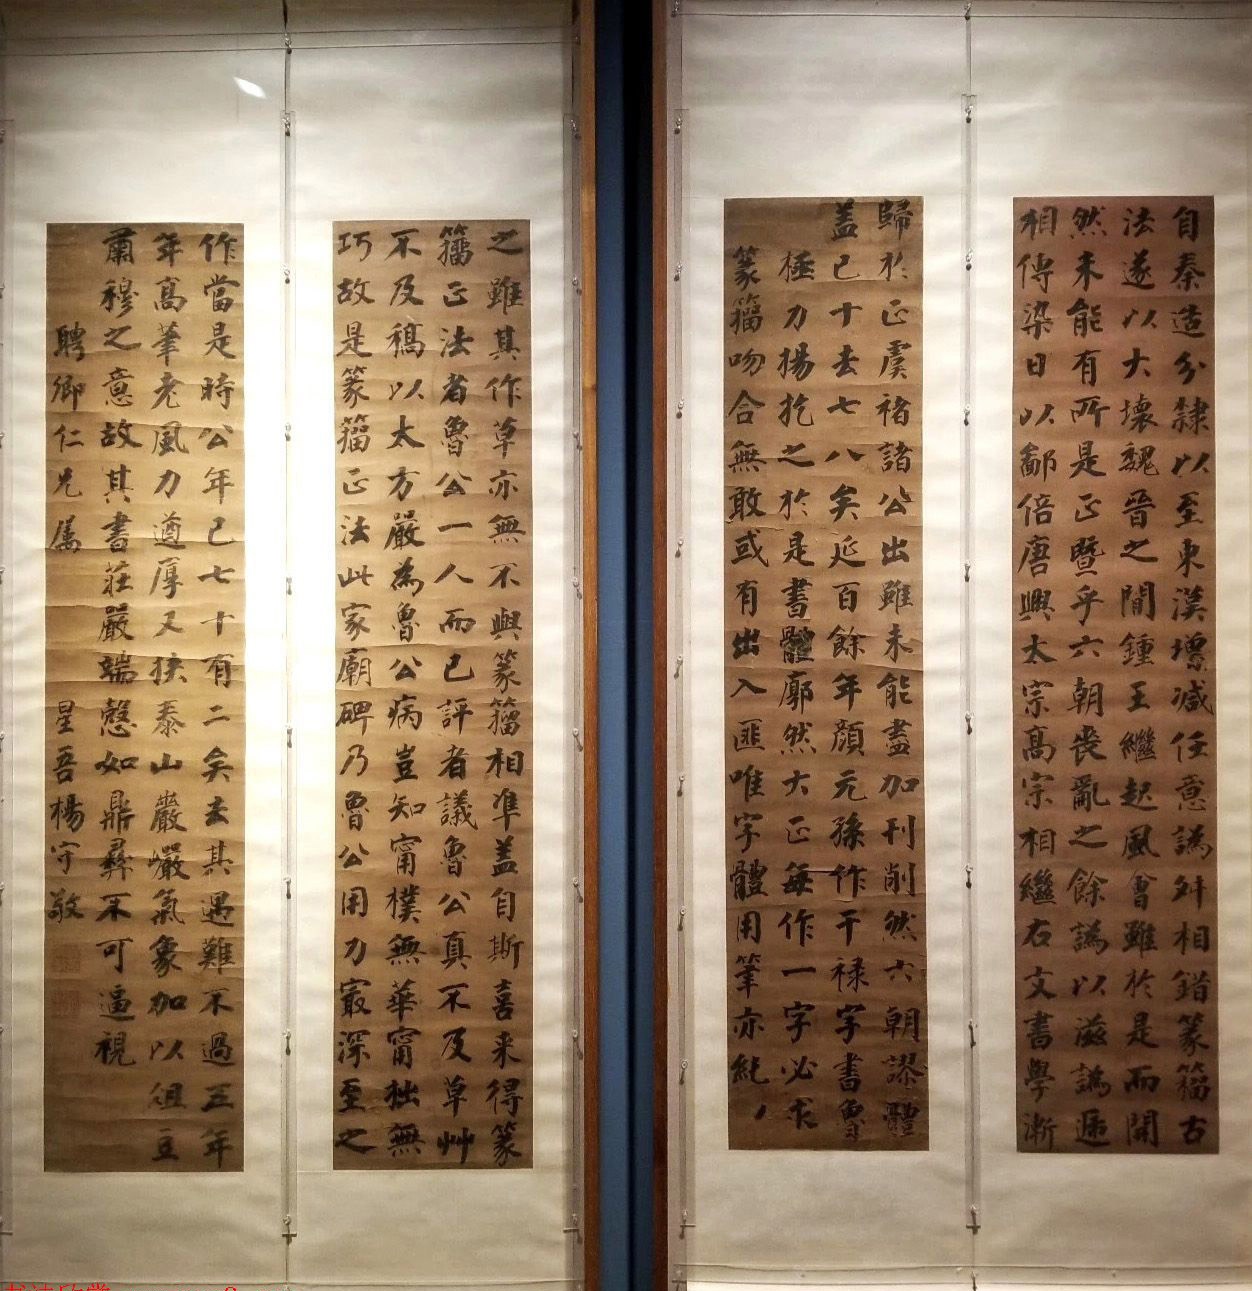 自秦造分隸以至東漢增減任意譌舛相錯篆籀古
法遂以大壞魏晉之間鍾王繼起風會雖於是而開
然未能有所是正暨乎六朝喪亂之餘譌以滋譌遞
相傳染日以鄙倍唐興太宗高宗相繼右文書學漸
歸於正虞褚諸公出雖未能盡加刊削然六朝謬體
蓋已十去七八矣延百餘年顏元孫作干祿字書魯
極力揚扢之於是書體廓然大正每作一字必求
篆籀吻合無敢或有出入匪唯字體用筆亦純、
之雖其作草亦無不與篆籀相準蓋自斯喜来得篆
籀正法者魯公一人而已評者議魯公真不及草艸
不及稿以太方嚴為魯公病豈知甯樸無華甯拙無
巧故是篆籀正法此家廟碑乃魯公用力㝡深至之
作當是時公年已七十有二矣去其遇難不過五年
年高筆老風力遒厚又挾泰山巖巖氣象加以俎豆
肅穆之意故其書莊嚴端慤如鼎彝不可逼視
聘卿仁兄属 星吾楊守敬